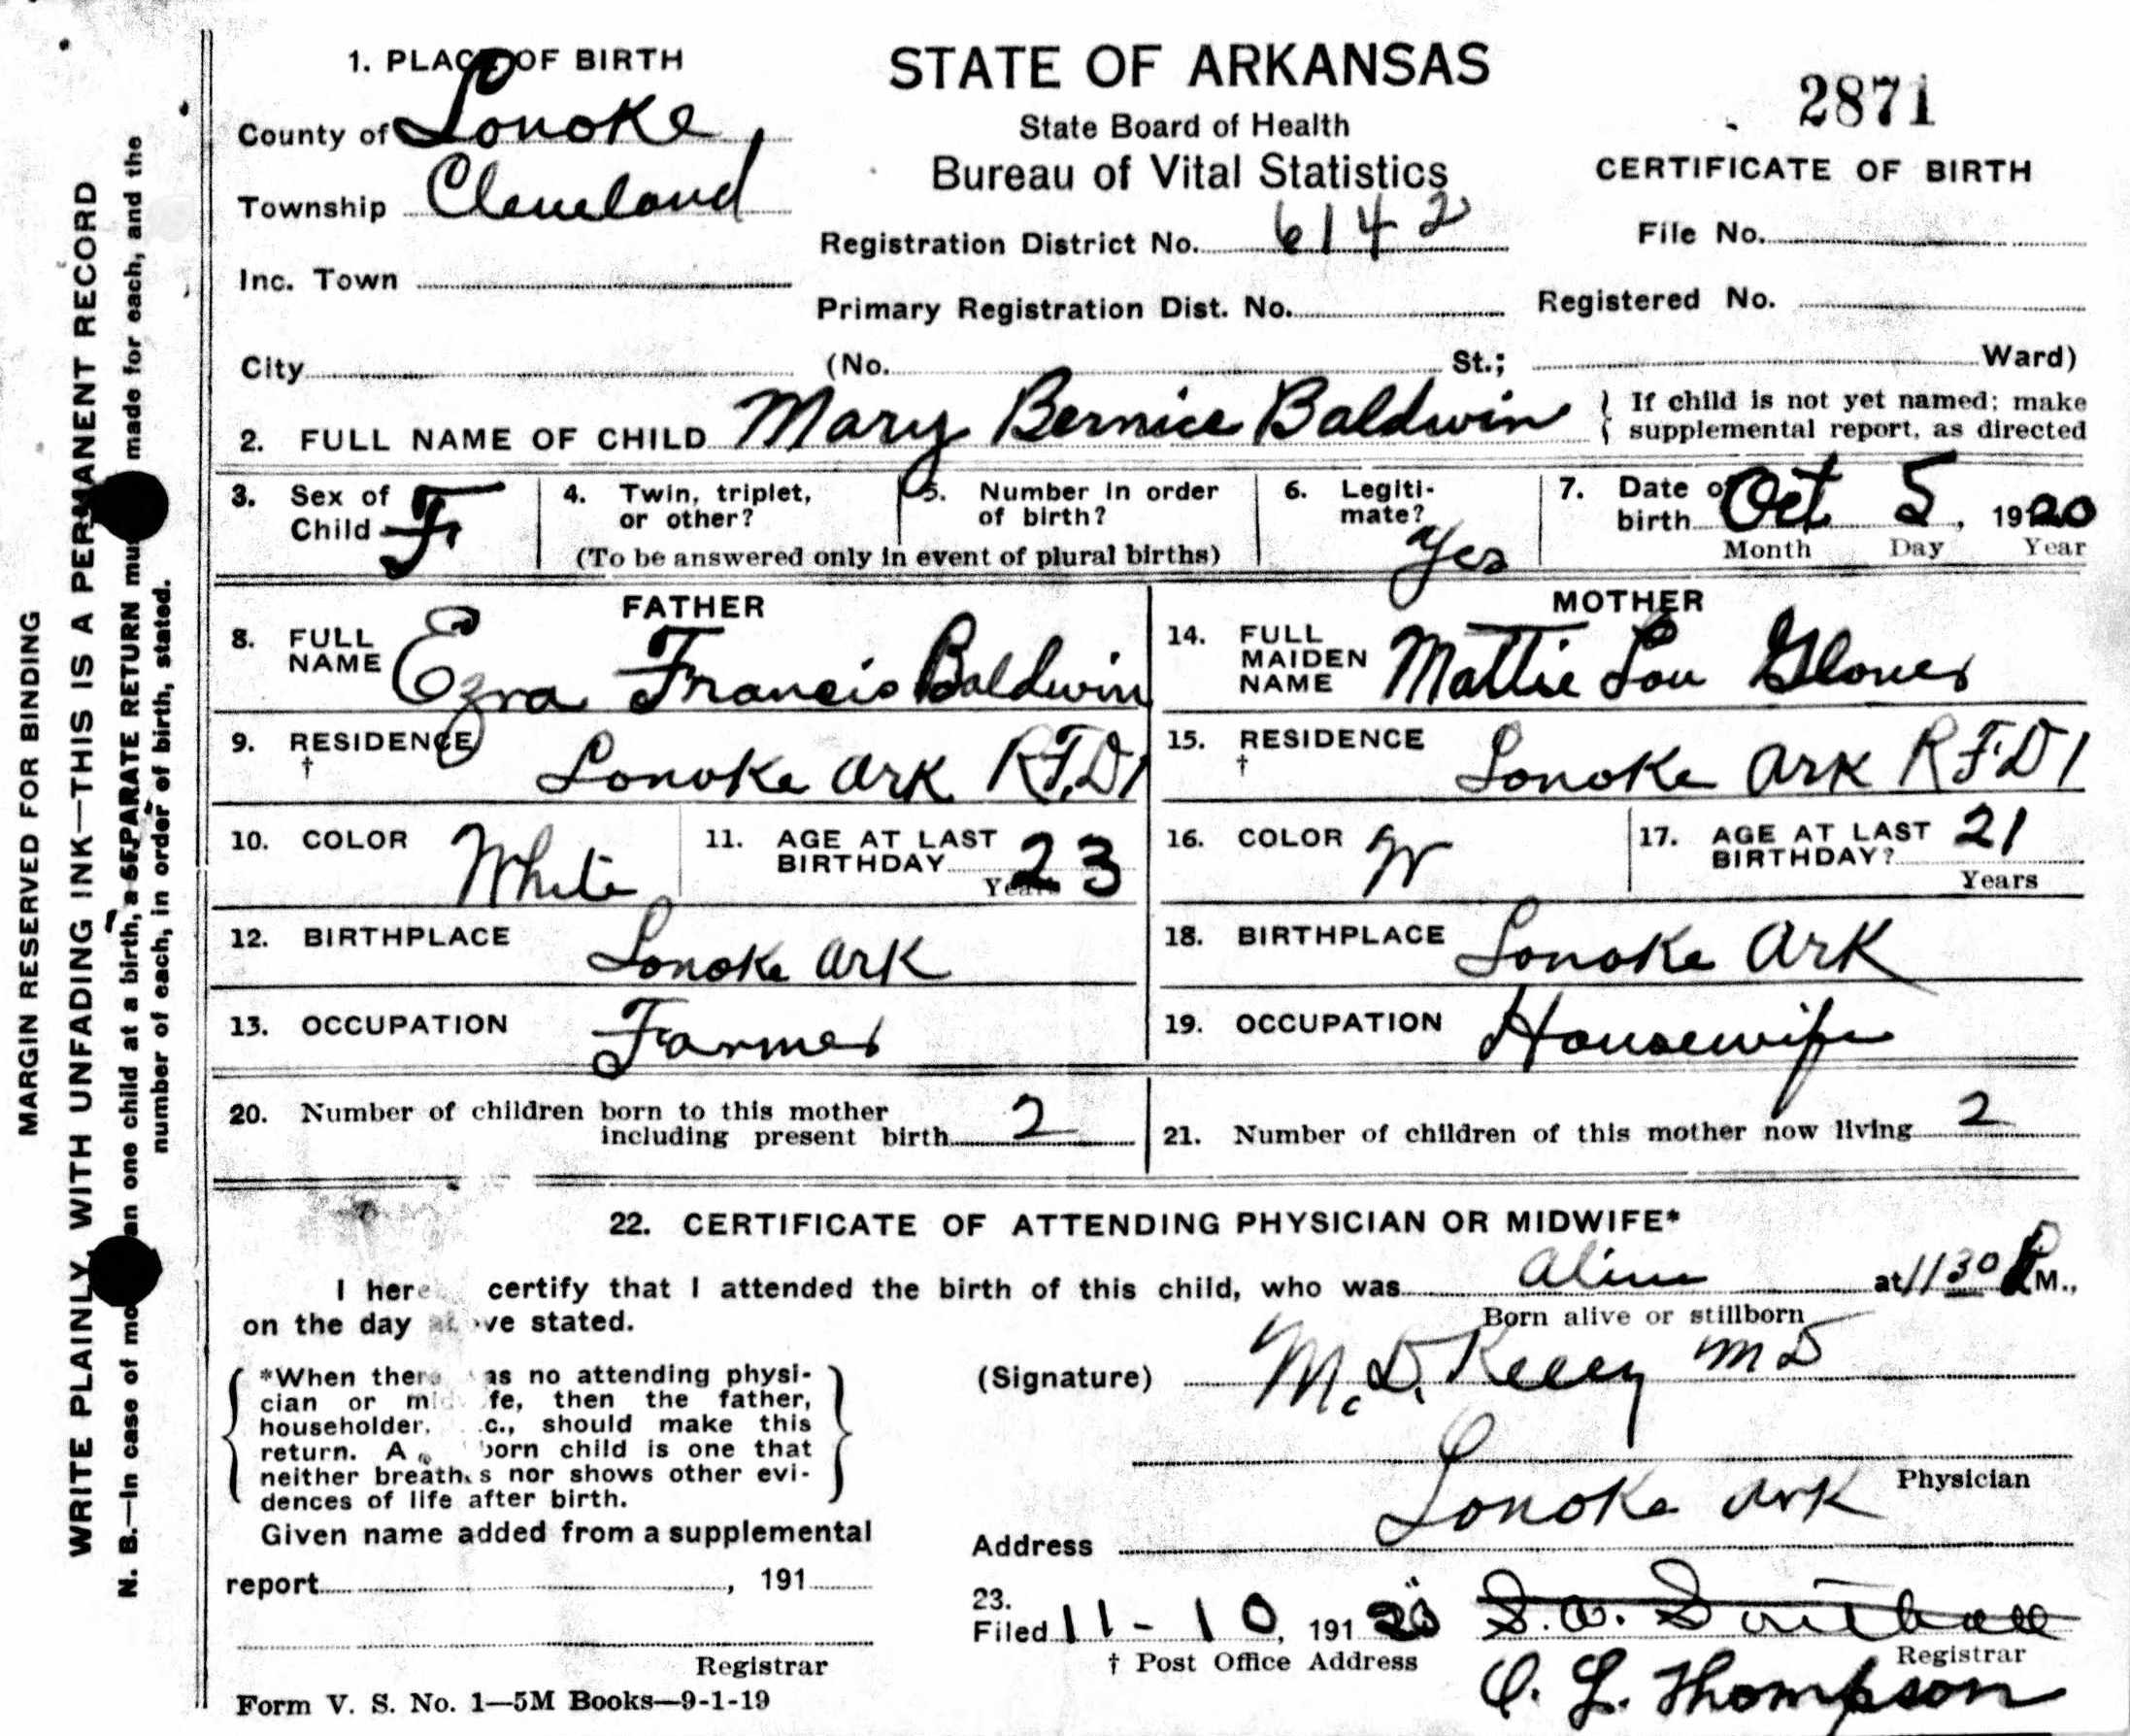 MARGIN RESERVED FOR BINDING
WRITE PLAINLY, WITH UNFADING INK—THIS IS A PERMANENT RECORD
N. B.—In case of mo an one child at a birth, a SEPARATE RETURN mu made for each, and the
number of each, in order of birth, stated.
1. PLACE OF BIRTH
County of Lonoke
Township Cleveland
Inc. Town
City
STATE OF ARKANSAS
State Board of Health
Bureau of Vital Statistics
Registration District No. 6142
Primary Registration Dist. No.
(No. St.; Ward)
2871
CERTIFICATE OF BIRTH
File No.
Registered No.
2. FULL NAME OF CHILD Mary Bernice Baldwin
If child is not yet named; make
supplemental report, as directed
3. Sex of
Child F
4. Twin, triplet,
or other?
5. Number in order
of birth?
(To be answered only in event of plural births)
6. Legiti-
mate?
Yes
7. Date of
birth Oct 5, 1920
Month Day Year
FATHER
8. FULL
NAME Ezra Francis Baldwin
9. RESIDENCE
† Lonoke Ark R.F.D 1
10. COLOR White
11. AGE AT LAST
BIRTHDAY 23
Years
12. BIRTHPLACE Lonoke Ark
13. OCCUPATION Farmer
MOTHER
14. FULL
MAIDEN
NAME Mattie Lou Glover
15. RESIDENCE
† Lonoke Ark R F D 1
16. COLOR W
17. AGE AT LAST
BIRTHDAY? 21
Years
18. BIRTHPLACE Lonoke Ark
19. OCCUPATION Housewife
20. Number of children born to this mother
including present birth 2
21. Number of children of this mother now living 2
22. CERTIFICATE OF ATTENDING PHYSICIAN OR MIDWIFE*
I here certify that I attended the birth of this child, who was alive at 1130 P M.,
Born alive or stillborn
on the day ab ve stated.
*When there as no attending physi-
cian or mid fe, then the father,
householder, .c., should make this
return. A born child is one that
neither breathes nor shows other evi-
dences of life after birth.
Given name added from a supplemental
report , 191
Registrar
Form V. S. No. 1—5M Books—9-1-19
(Signature) Mc.D. Kelley MD
Physician
Address Lonoke Ark
23.
Filed 11-10, 191 20 S. A. Southall
† Post Office Address
Registrar
O. L. Thompson